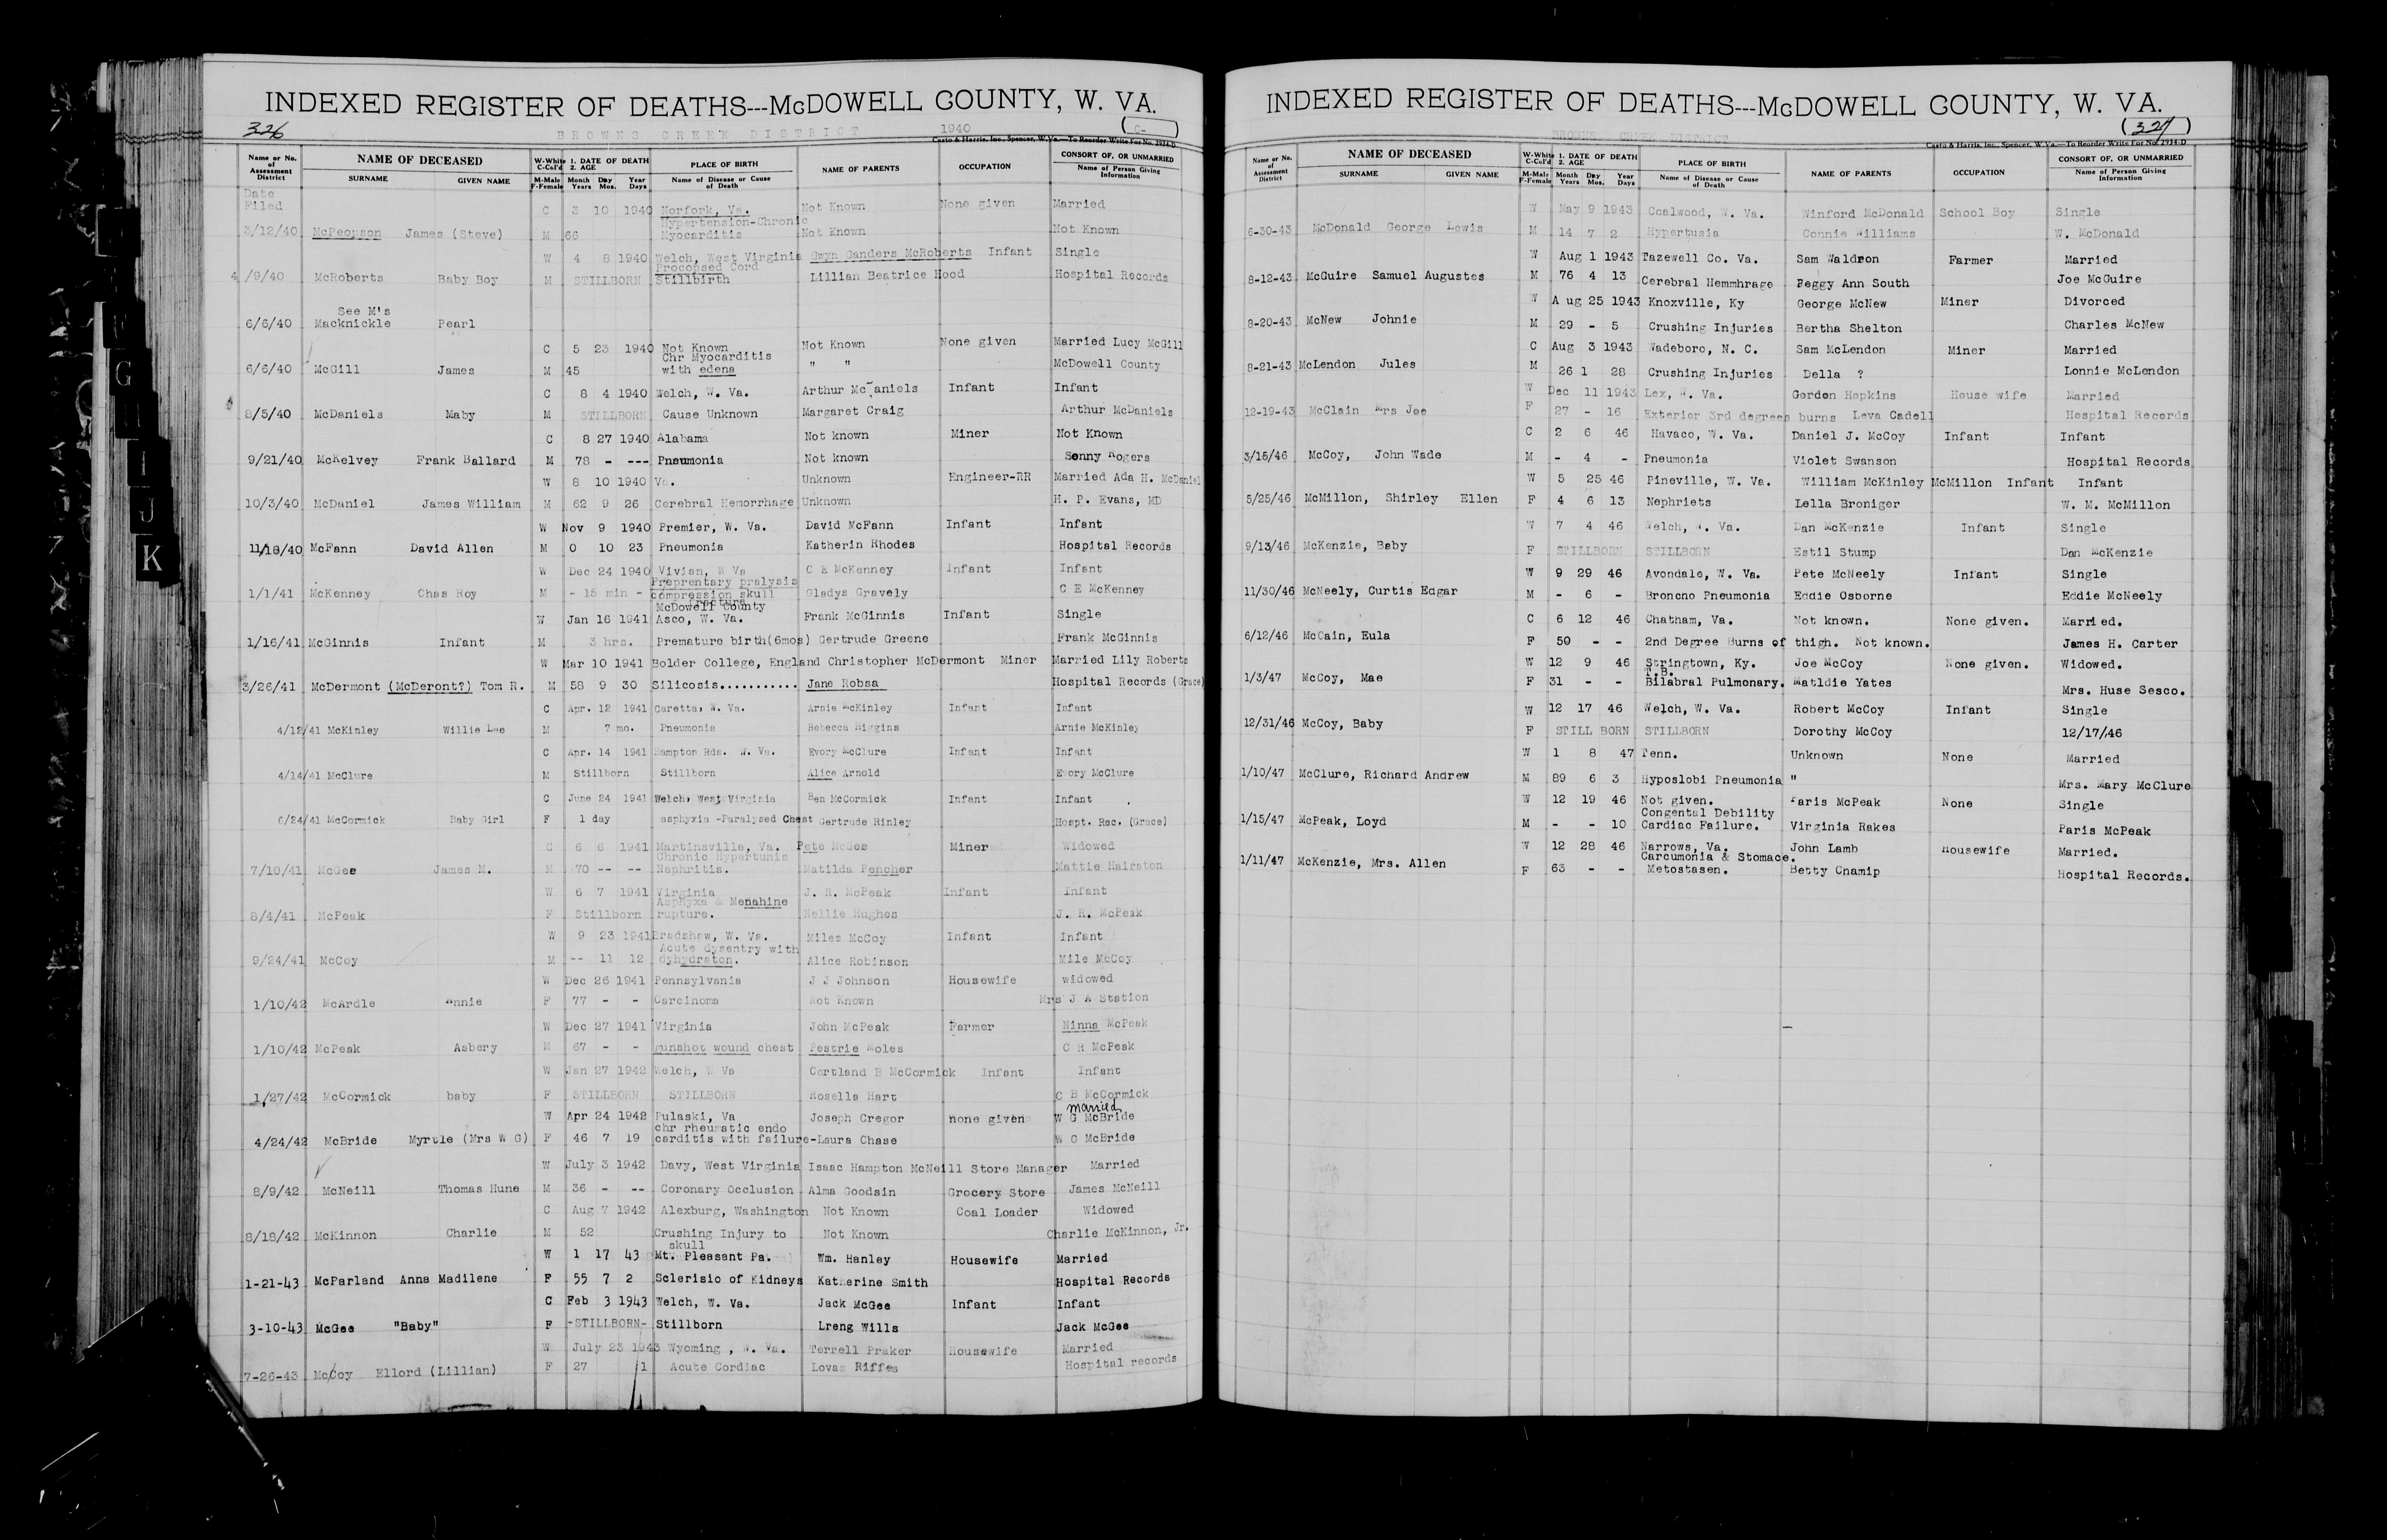 INDEXED REGISTER OF DEATHS---McDOWELL COUNTY, W. VA.
326
BROWNS CREEK DISTRICT 1940
Casto & Harris, Inc., Spencer, W. Va.—To Reorder Write For No. 2934-D
Name or No. of Assessment District NAME OF DECEASED SURNAME GIVEN NAME W-White C-Col'd M-Male F-Female 1. DATE OF DEATH 2. AGE Month Day Year Years Mos. Days PLACE OF BIRTH Name of Disease or Cause of Death NAME OF PARENTS OCCUPATION CONSORT OF, OR UNMARRIED Name of Person Giving Information
Date
Filed
C 3 10 1940 Norfork, Va. Not Known None given Married
Hypertension-Chronic
3/12/40 McPeopson James (Steve) M 66 Myocarditis Not Known Not Known
W 4 8 1940 Welch, West Virginia Gwyn Sanders McRoberts Infant Single
Procopsed Cord
4/9/40 McRoberts Baby Boy M STILLBORN Stillbirth Lillian Beatrice Hood Hospital Records
See M's
6/6/40 Macknickle Pearl
C 5 23 1940 Not Known Not Known None given Married Lucy McGill
Chr Myocarditis
6/6/40 McGill James M 45 with edena " " McDowell County
C 8 4 1940 Welch, W. Va. Arthur McDaniels Infant Infant
8/5/40 McDaniels Maby M STILLBORN Cause Unknown Margaret Craig Arthur McDaniels
C 8 27 1940 Alabama Not known Miner Not Known
9/21/40 McKelvey Frank Ballard M 78 - --- Pneumonia Not known Sonny Rogers
W 8 10 1940 Va. Unknown Engineer-RR Married Ada H. McDaniel
10/3/40 McDaniel James William M 62 9 26 Cerebral Hemorrhage Unknown H. P. Evans, MD
W Nov 9 1940 Premier, W. Va. David McFann Infant Infant
11/18/40 McFann David Allen M 0 10 23 Pneumonia Katherin Rhodes Hospital Records
W Dec 24 1940 Vivian, W Va C E McKenney Infant Infant
Preprentary pralysis
1/1/41 McKenney Chas Roy M - 15 min - compression skull Gladys Gravely C E McKenney
fracture
McDowell County
W Jan 16 1941 Asco, W. Va. Frank McGinnis Infant Single
1/16/41 McGinnis Infant M 3 hrs. Premature birth(6mos) Gertrude Greene Frank McGinnis
W Mar 10 1941 Bolder College, England Christopher McDermont Miner Married Lily Roberts
3/26/41 McDermont (McDeront?) Tom R. M 58 9 30 Silicosis........... Jane Robsa Hospital Records (Grace)
C Apr. 12 1941 Caretta, W. Va. Arnie McKinley Infant Infant
4/12/41 McKinley Willie Lee M 7 mo. Pneumonia Rebecca Higgins Arnie McKinley
C Apr. 14 1941 Hampton Rds. W. Va. Evory McClure Infant Infant
4/14/41 McClure M Stillborn Stillborn Alice Arnold Evory McClure
C June 24 1941 Welch, West Virginia Ben McCormick Infant Infant
6/24/41 McCormick Baby Girl F 1 day asphyxia -Paralysed Chest Gertrude Rinley Hospt. Rec. (Grace)
C 6 6 1941 Martinsville, Va. Pete McGee Miner Widowed
Chronic Hypertunis
7/10/41 McGee James M. M 70 -- -- Nephritis. Matilda Pencher Mattie Hairston
W 6 7 1941 Virginia J. R. McPeak Infant Infant
Asphyxa & Menahine
8/4/41 McPeak F Stillborn rupture. Nellie Hughes J. R. McPeak
W 9 23 1941 Bradshaw, W. Va. Miles McCoy Infant Infant
Acute dysentry with
9/24/41 McCoy M -- 11 12 dyhydraton. Alice Robinson Mile McCoy
W Dec 26 1941 Pennsylvania J J Johnson Housewife widowed
1/10/42 McArdle Annie F 77 - - Carcinoma Not Known Mrs J A Station
W Dec 27 1941 Virginia John McPeak Farmer Ninna McPeak
1/10/42 McPeak Asbery M 67 - - gunshot wound chest Pestrie Moles C R McPeak
W Jan 27 1942 Welch, W Va Cortland B McCormick Infant Infant
1/27/42 McCormick baby F STILLBORN STILLBORN Rosella Hart C B McCormick
married
W Apr 24 1942 Pulaski, Va Joseph Cregor none given W G McBride
chr rheumatic endo
4/24/42 McBride Myrtle (Mrs W G) F 46 7 19 carditis with failure-Laura Chase W G McBride
W July 3 1942 Davy, West Virginia Isaac Hampton McNeill Store Manager Married
8/9/42 McNeill Thomas Hune M 36 - -- Coronary Occlusion Alma Goodsin Grocery Store James McNeill
C Aug 7 1942 Alexburg, Washington Not Known Coal Loader Widowed
8/18/42 McKinnon Charlie M 52 Crushing Injury to Not Known Charlie McKinnon, Jr.
skull
W 1 17 43 Mt. Pleasant Pa. Wm. Hanley Housewife Married
1-21-43 McFarland Anna Madilene F 55 7 2 Sclerisio of Kidneys Katherine Smith Hospital Records
C Feb 3 1943 Welch, W. Va. Jack McGee Infant Infant
3-10-43 McGee "Baby" F -STILLBORN- Stillborn Lreng Wills Jack McGee
W July 23 1943 Wyoming , W. Va. Terrell Praker Housewife Married
7-26-43 McCoy Ellord (Lillian) F 27 1 Acute Cordiac Lovas Riffes Hospital records
INDEXED REGISTER OF DEATHS---McDOWELL COUNTY, W. VA.
(327)
BROWNS CREEK DISTRICT
Casto & Harris, Inc., Spencer, W. Va.—To Reorder Write For No. 2934-D
Name or No. of Assessment District NAME OF DECEASED SURNAME GIVEN NAME W-White C-Col'd M-Male F-Female 1. DATE OF DEATH 2. AGE Month Day Year Years Mos. Days PLACE OF BIRTH Name of Disease or Cause of Death NAME OF PARENTS OCCUPATION CONSORT OF, OR UNMARRIED Name of Person Giving Information
W May 9 1943 Coalwood, W. Va. Winford McDonald School Boy Single
6-30-43 McDonald George Lewis M 14 7 2 Hypertusia Connie Williams W. McDonald
W Aug 1 1943 Tazewell Co. Va. Sam Waldron Farmer Married
8-12-43 McGuire Samuel Augustes M 76 4 13 Cerebral Hemmhrage Peggy Ann South Joe McGuire
W A ug 25 1943 Knoxville, Ky George McNew Miner Divorced
8-20-43 McNew Johnie M 29 - 5 Crushing Injuries Bertha Shelton Charles McNew
C Aug 3 1943 Wadeboro, N. C. Sam McLendon Miner Married
8-21-43 McLendon Jules M 26 1 28 Crushing Injuries Della ? Lonnie McLendon
W Dec 11 1943 Lex, W. Va. Gordon Hopkins House wife Married
12-19-43 McClain Mrs Joe F 27 - 16 Exterior 3rd degrees burns Leva Cadell Hospital Records
C 2 6 46 Havaco, W. Va. Daniel J. McCoy Infant Infant
3/15/46 McCoy, John Wade M - 4 - Pneumonia Violet Swanson Hospital Records
W 5 25 46 Pineville, W. Va. William McKinley McMillon Infant Infant
5/25/46 McMillon, Shirley Ellen F 4 6 13 Nephriets Lella Broniger W. M. McMillon
W 7 4 46 Welch, W. Va. Dan McKenzie Infant Single
9/13/46 McKenzie, Baby F STILLBORN STILLBORN Estil Stump Dan McKenzie
W 9 29 46 Avondale, W. Va. Pete McNeely Infant Single
11/30/46 McNeely, Curtis Edgar M - 6 - Broncno Pneumonia Eddie Osborne Eddie McNeely
C 6 12 46 Chatham, Va. Not known. None given. Married.
6/12/46 McCain, Eula F 50 - - 2nd Degree Burns of thigh. Not known. James H. Carter
W 12 9 46 Stringtown, Ky. Joe McCoy None given. Widowed.
T.B.
1/3/47 McCoy, Mae F 31 - - Bilabral Pulmonary. Matldie Yates Mrs. Huse Sesco.
W 12 17 46 Welch, W. Va. Robert McCoy Infant Single
12/31/46 McCoy, Baby F STILL BORN STILLBORN Dorothy McCoy 12/17/46
W 1 8 47 Tenn. Unknown None Married
1/10/47 McClure, Richard Andrew M 89 6 3 Hyposlobi Pneumonia " Mrs. Mary McClure
W 12 19 46 Not given. Paris McPeak None Single
Congental Debility
1/15/47 McPeak, Loyd M - - 10 Cardiac Failure. Virginia Rakes Paris McPeak
W 12 28 46 Narrows, Va. John Lamb Housewife Married.
Carcumonia & Stomace.
1/11/47 McKenzie, Mrs. Allen F 63 - - Metostasen. Betty Cnamip Hospital Records.
G
I
J
K